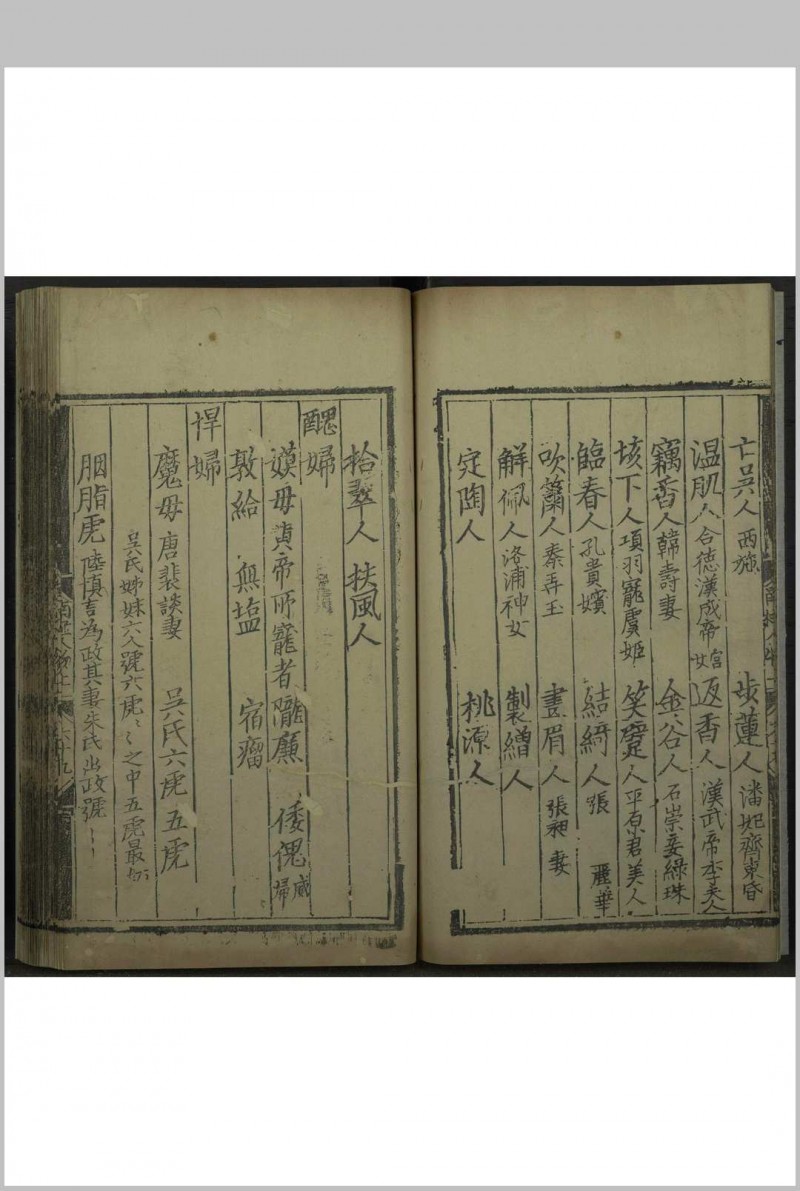 亡吳人 西施 步蓮人 潘妃齊東昏
温肌人 合德漢成帝宮女 返香人 漢武帝李夫人
竊香人 韓壽妻 金谷人 石崇妾綠珠
垓下人 項羽寵虞姬 笑躄人 平原君美人
臨春人 孔貴嬪 結綺人 張麗華
吹簫人 秦弄玉 畫眉人 張敞妻
解佩人 洛浦神女 製繒人
定陶人 桃源人
拾翠人 扶風人
醜婦
嫫毋 黃帝所寵者 隴廉 倭傀
敦給 無塩 宿瘤
悍婦
魔毋 唐裴談妻 吳氏六虎 五虎
吳氏姊妹六人號六虎〻〻之中五虎最
胭脂虎 陸慎言為政其妻朱氏出政號〻〻